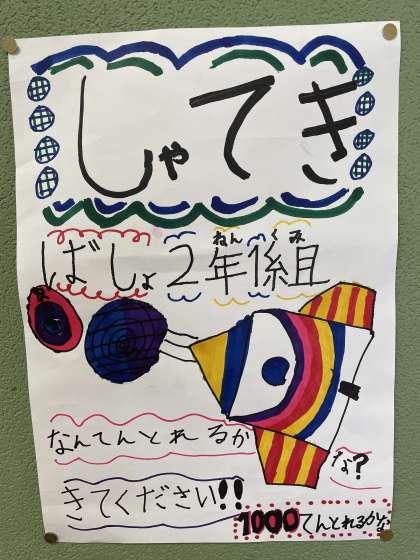 しゃてき
ばしょ2年1組
ねんくみ
なんてんとれるか
な?
きてください!!
1000てんとれるかな